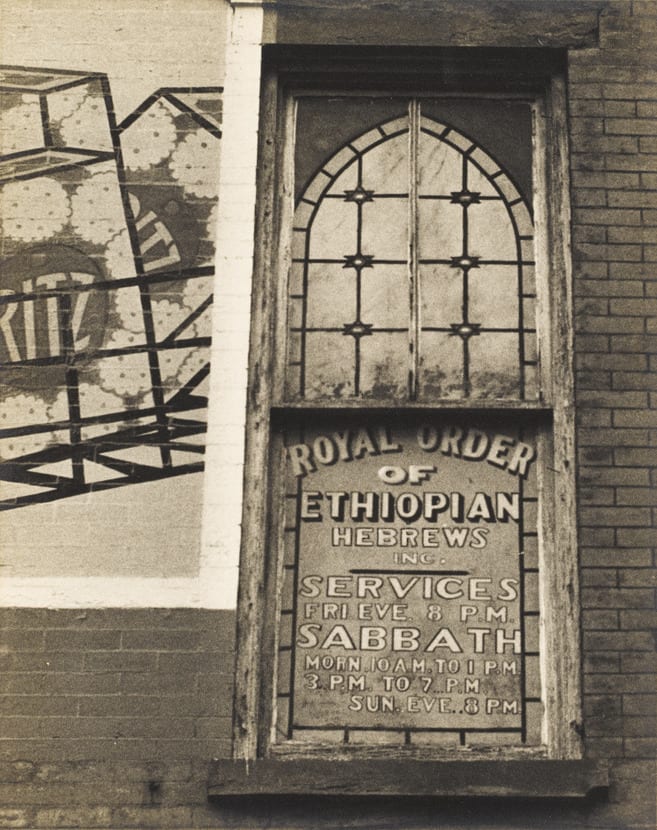 RITZ
RITZ
ROYAL ORDER
OF
ETHIOPIAN
HEBREWS
INC.
SERVICES
FRI EVE. 8 P.M.
SABBATH
MORN. 10 A.M. TO 1 P.M.
3. P.M. TO 7.. P.M
SUN. EVE.. 8 PM.